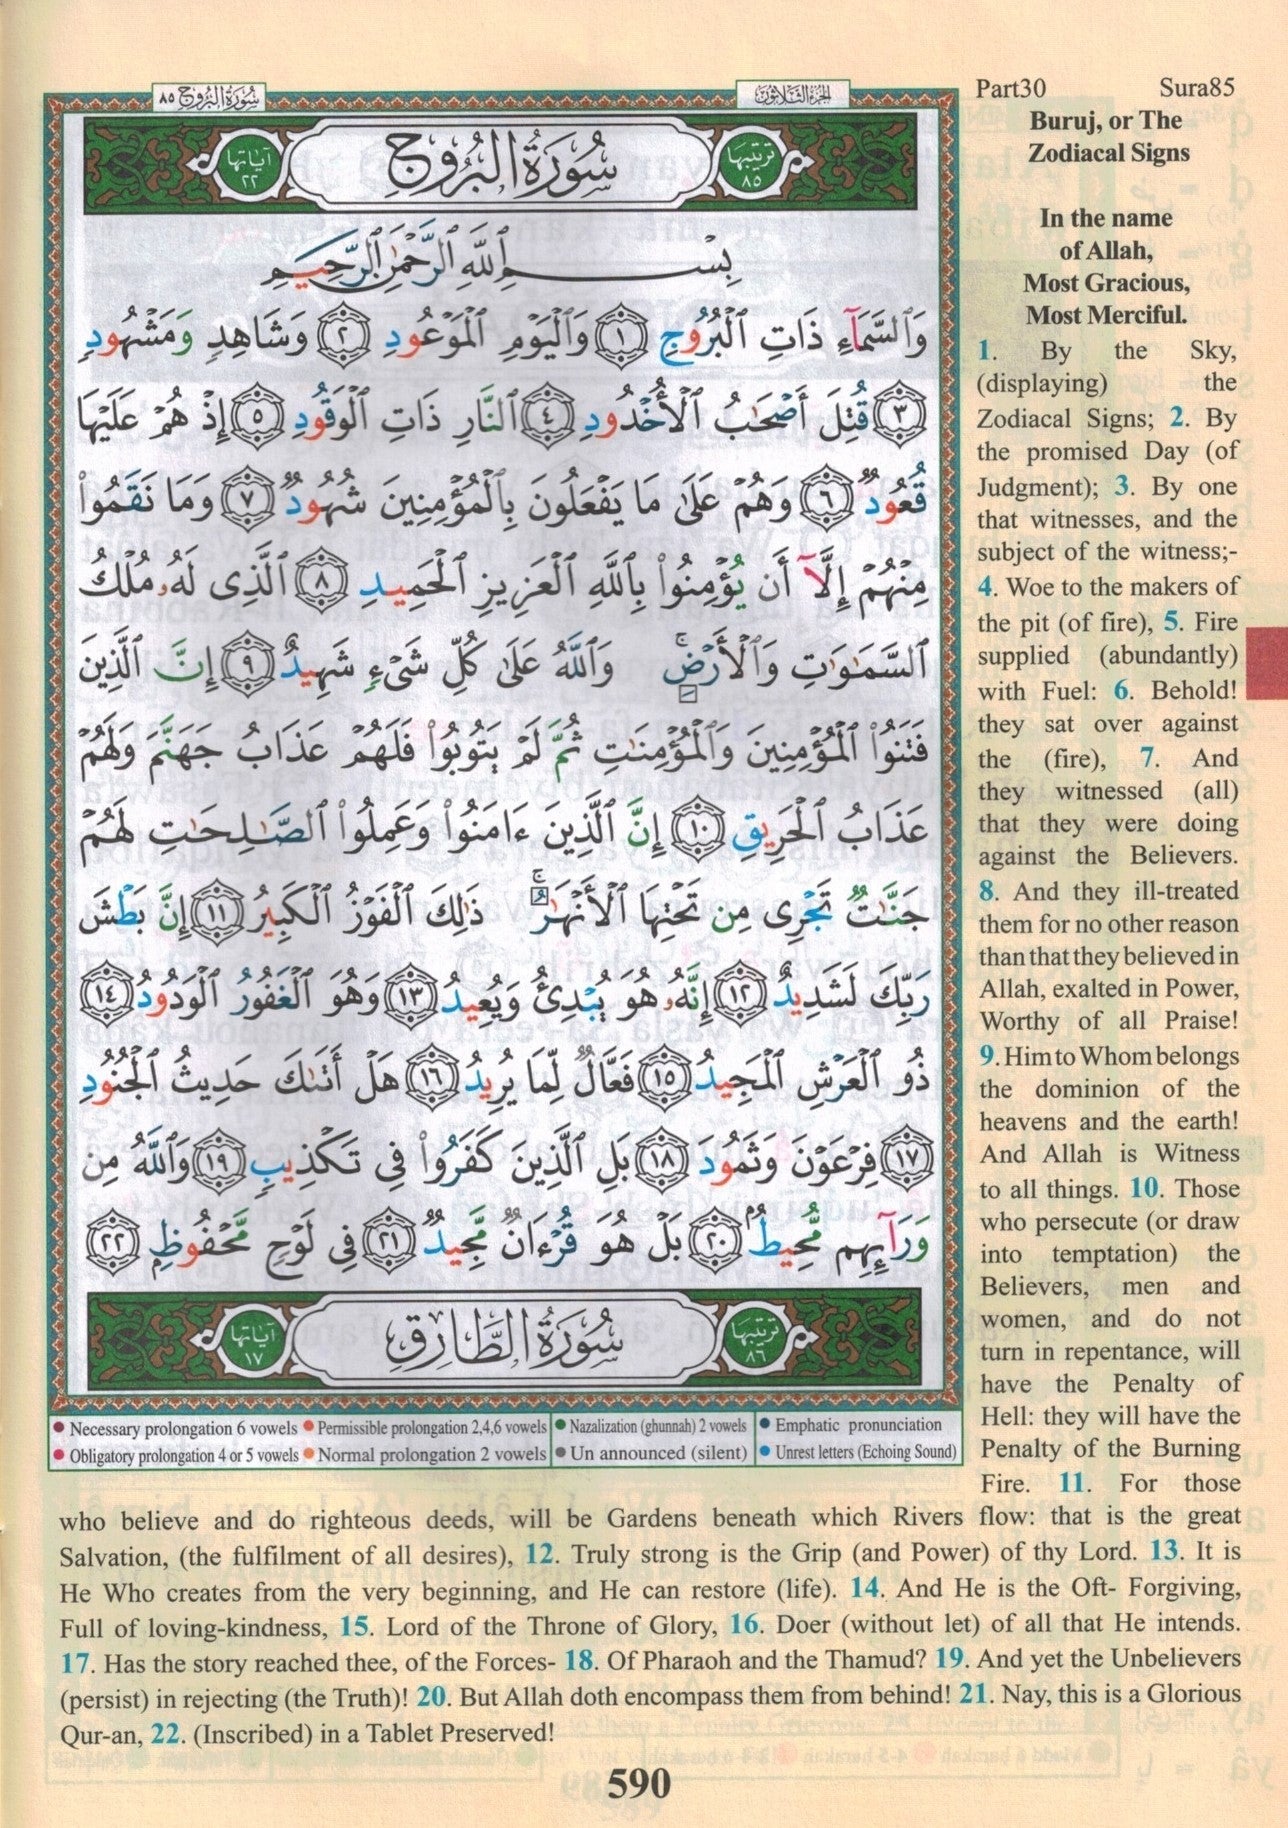 سورة البروج ٨٥
الجزء الثلاثون
Part30 Sura85
آياتها ٢٢ سُورَةُ البُرُوجِ ترتيبها ٨٥
بِسۡمِ ٱللَّهِ ٱلرَّحۡمَٰنِ ٱلرَّحِيمِ
وَٱلسَّمَآءِ ذَاتِ ٱلۡبُرُوجِ ١ وَٱلۡيَوۡمِ ٱلۡمَوۡعُودِ ٢ وَشَاهِدٖ وَمَشۡهُودٖ
٣ قُتِلَ أَصۡحَٰبُ ٱلۡأُخۡدُودِ ٤ ٱلنَّارِ ذَاتِ ٱلۡوَقُودِ ٥ إِذۡ هُمۡ عَلَيۡهَا
قُعُودٞ ٦ وَهُمۡ عَلَىٰ مَا يَفۡعَلُونَ بِٱلۡمُؤۡمِنِينَ شُهُودٞ ٧ وَمَا نَقَمُواْ
مِنۡهُمۡ إِلَّآ أَن يُؤۡمِنُواْ بِٱللَّهِ ٱلۡعَزِيزِ ٱلۡحَمِيدِ ٨ ٱلَّذِي لَهُۥ مُلۡكُ
ٱلسَّمَٰوَٰتِ وَٱلۡأَرۡضِۚ وَٱللَّهُ عَلَىٰ كُلِّ شَيۡءٖ شَهِيدٌ ٩ إِنَّ ٱلَّذِينَ
فَتَنُواْ ٱلۡمُؤۡمِنِينَ وَٱلۡمُؤۡمِنَٰتِ ثُمَّ لَمۡ يَتُوبُواْ فَلَهُمۡ عَذَابُ جَهَنَّمَ وَلَهُمۡ
عَذَابُ ٱلۡحَرِيقِ ١٠ إِنَّ ٱلَّذِينَ ءَامَنُواْ وَعَمِلُواْ ٱلصَّٰلِحَٰتِ لَهُمۡ
جَنَّٰتٞ تَجۡرِي مِن تَحۡتِهَا ٱلۡأَنۡهَٰرُۚ ذَٰلِكَ ٱلۡفَوۡزُ ٱلۡكَبِيرُ ١١ إِنَّ بَطۡشَ
رَبِّكَ لَشَدِيدٌ ١٢ إِنَّهُۥ هُوَ يُبۡدِئُ وَيُعِيدُ ١٣ وَهُوَ ٱلۡغَفُورُ ٱلۡوَدُودُ ١٤
ذُو ٱلۡعَرۡشِ ٱلۡمَجِيدُ ١٥ فَعَّالٞ لِّمَا يُرِيدُ ١٦ هَلۡ أَتَىٰكَ حَدِيثُ ٱلۡجُنُودِ
١٧ فِرۡعَوۡنَ وَثَمُودَ ١٨ بَلِ ٱلَّذِينَ كَفَرُواْ فِي تَكۡذِيبٖ ١٩ وَٱللَّهُ مِن
وَرَآئِهِم مُّحِيطُۢ ٢٠ بَلۡ هُوَ قُرۡءَانٞ مَّجِيدٞ ٢١ فِي لَوۡحٖ مَّحۡفُوظِۭ ٢٢
آياتها ١٧ سُورَةُ الطَّارِقِ ترتيبها ٨٦
Necessary prolongation 6 vowels Permissible prolongation 2,4,6 vowels Nazalization (ghunnah) 2 vowels Emphatic pronunciation
Obligatory prolongation 4 or 5 vowels Normal prolongation 2 vowels Un announced (silent) Unrest letters (Echoing Sound)
Buruj, or The
Zodiacal Signs
In the name
of Allah,
Most Gracious,
Most Merciful.
1. By the Sky,
(displaying) the
Zodiacal Signs; 2. By
the promised Day (of
Judgment); 3. By one
that witnesses, and the
subject of the witness;-
4. Woe to the makers of
the pit (of fire), 5. Fire
supplied (abundantly)
with Fuel: 6. Behold!
they sat over against
the (fire), 7. And
they witnessed (all)
that they were doing
against the Believers.
8. And they ill-treated
them for no other reason
than that they believed in
Allah, exalted in Power,
Worthy of all Praise!
9. Him to Whom belongs
the dominion of the
heavens and the earth!
And Allah is Witness
to all things. 10. Those
who persecute (or draw
into temptation) the
Believers, men and
women, and do not
turn in repentance, will
have the Penalty of
Hell: they will have the
Penalty of the Burning
Fire. 11. For those
who believe and do righteous deeds, will be Gardens beneath which Rivers flow: that is the great
Salvation, (the fulfilment of all desires), 12. Truly strong is the Grip (and Power) of thy Lord. 13. It is
He Who creates from the very beginning, and He can restore (life). 14. And He is the Oft- Forgiving,
Full of loving-kindness, 15. Lord of the Throne of Glory, 16. Doer (without let) of all that He intends.
17. Has the story reached thee, of the Forces- 18. Of Pharaoh and the Thamud? 19. And yet the Unbelievers
(persist) in rejecting (the Truth)! 20. But Allah doth encompass them from behind! 21. Nay, this is a Glorious
Qur-an, 22. (Inscribed) in a Tablet Preserved!
590